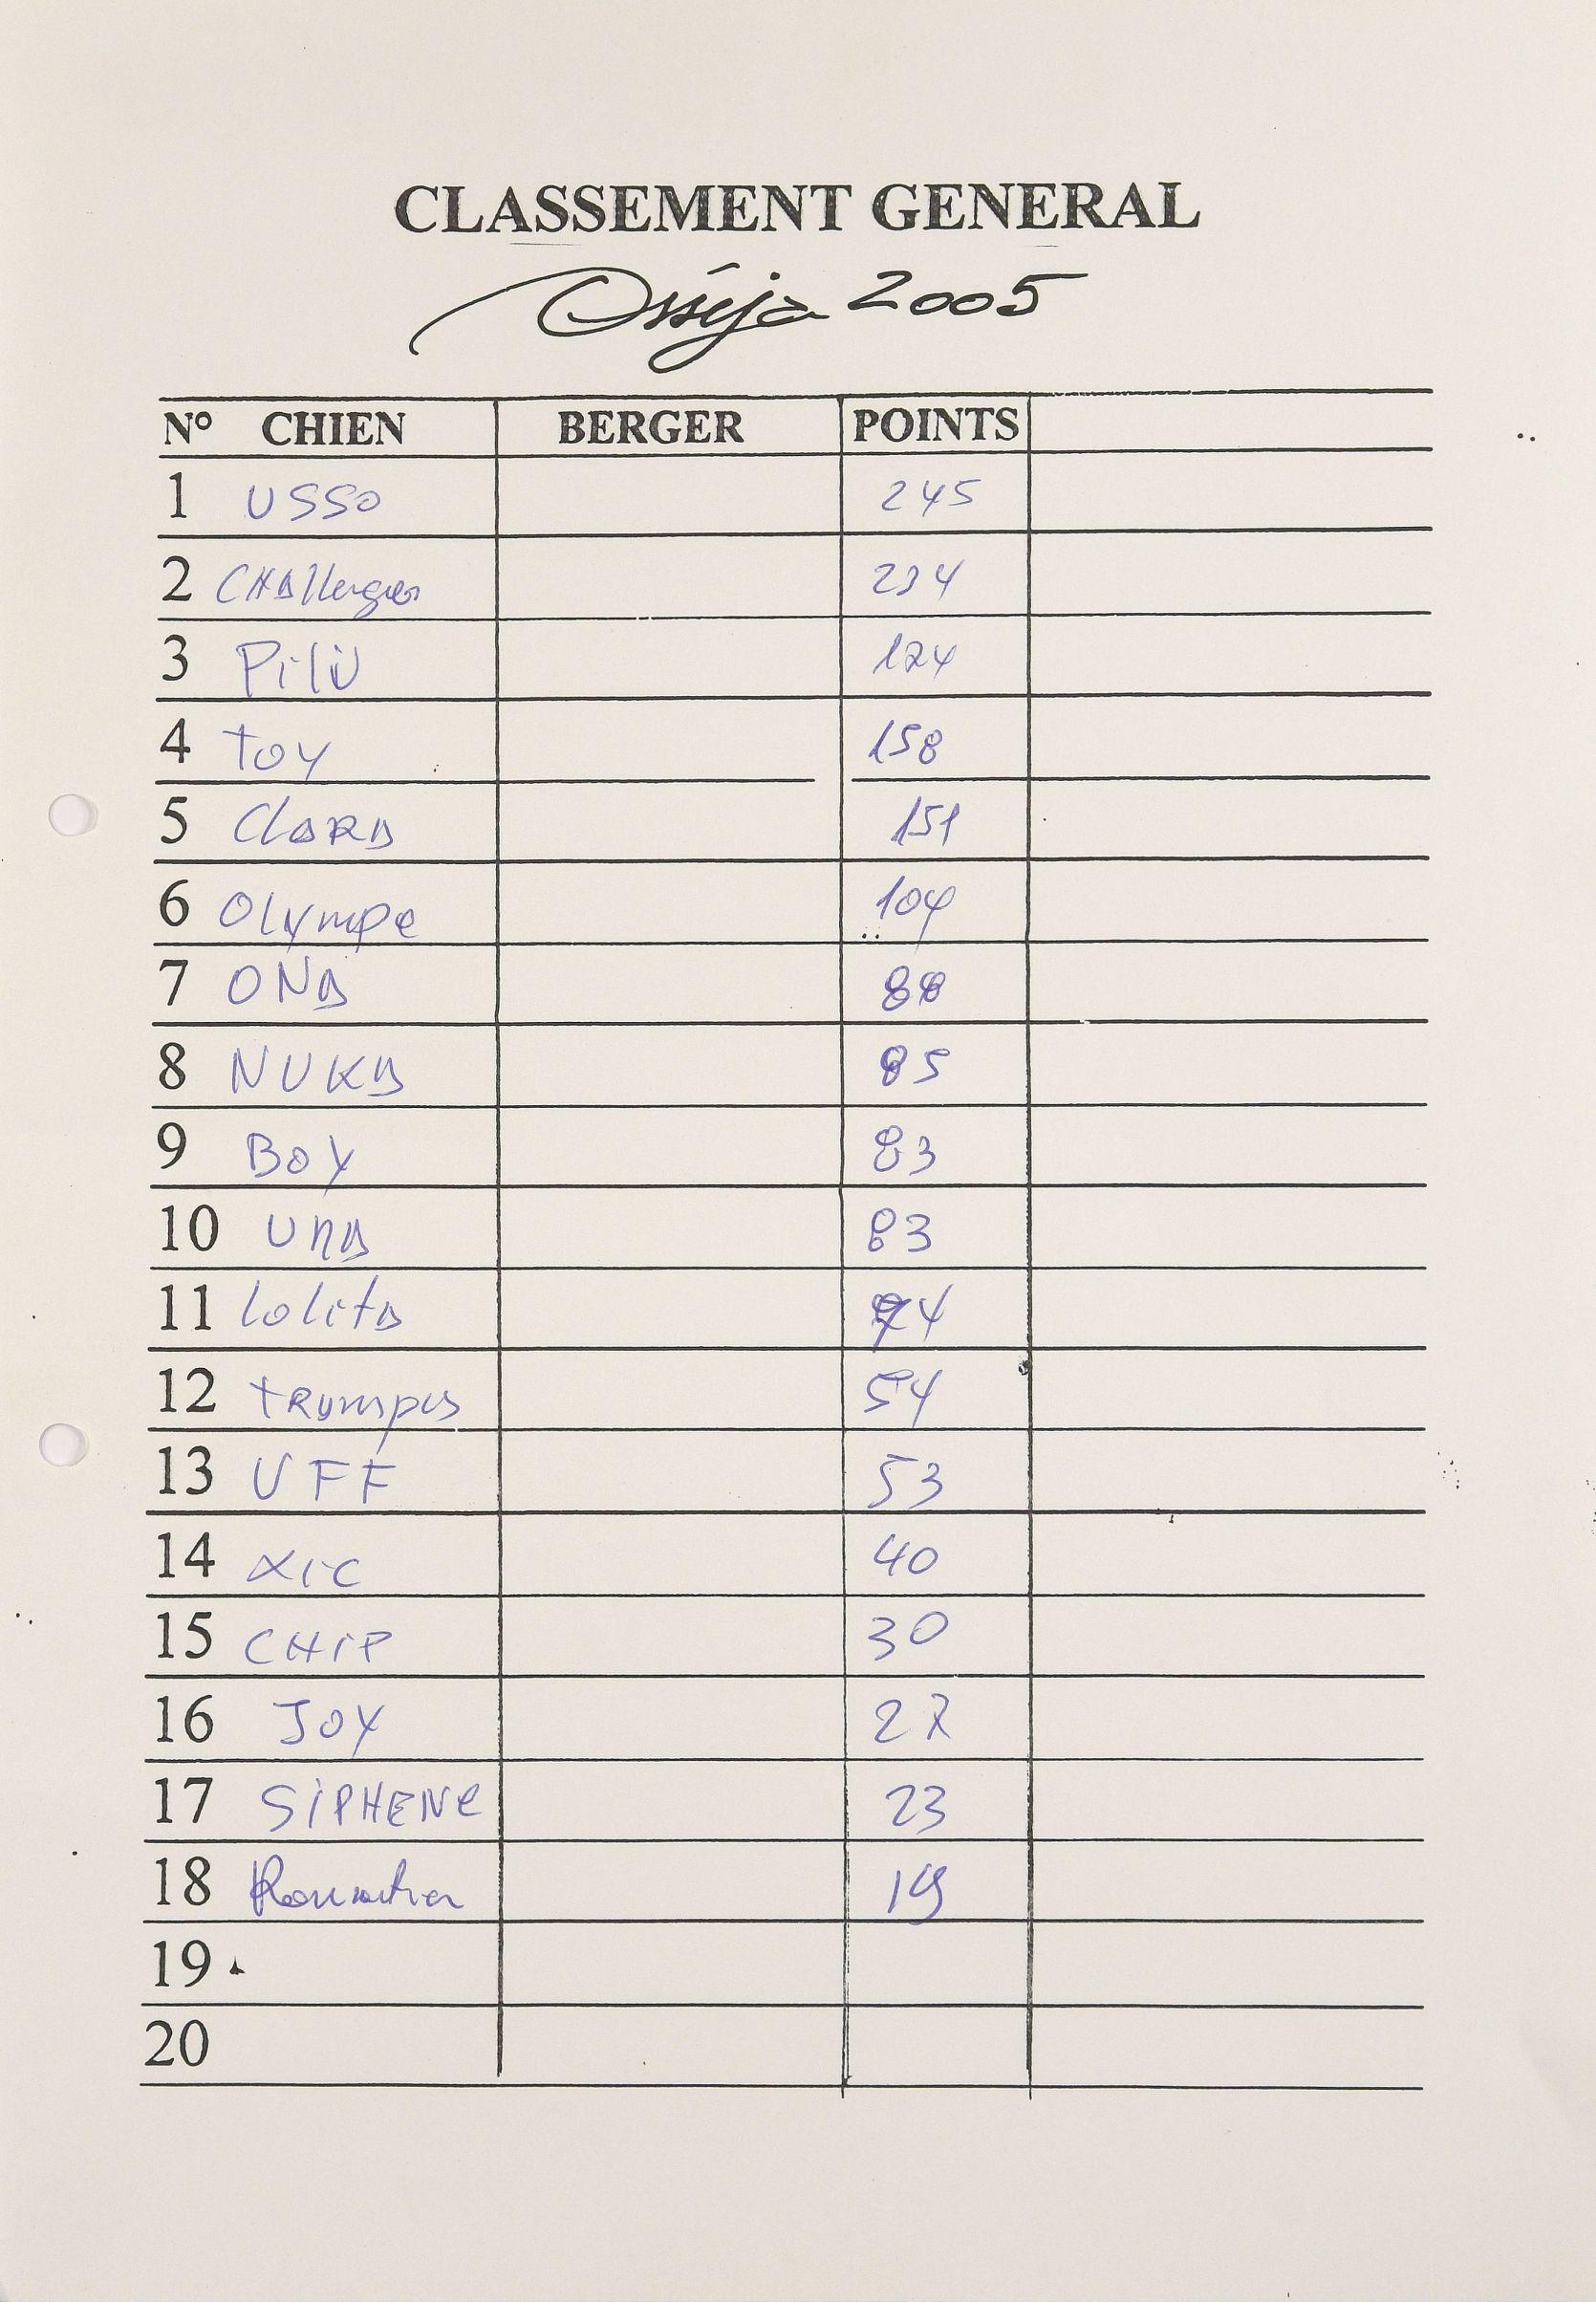 CLASSEMENT GENERAL
Osséja 2005
N° CHIEN BERGER POINTS
1 USSO 245
2 CHAllenger 234
3 PiliU 124
4 toy 158
5 ClaRA 151
6 Olympe 104
7 ONA 88
8 NUKA 85
9 BOY 83
10 UnA 83
11 lolitA 74
12 54
13 UFF 53
14 XiC 40
15 CHiP 30
16 JOY 27
17 SiPHENe 23
18 19
19
20